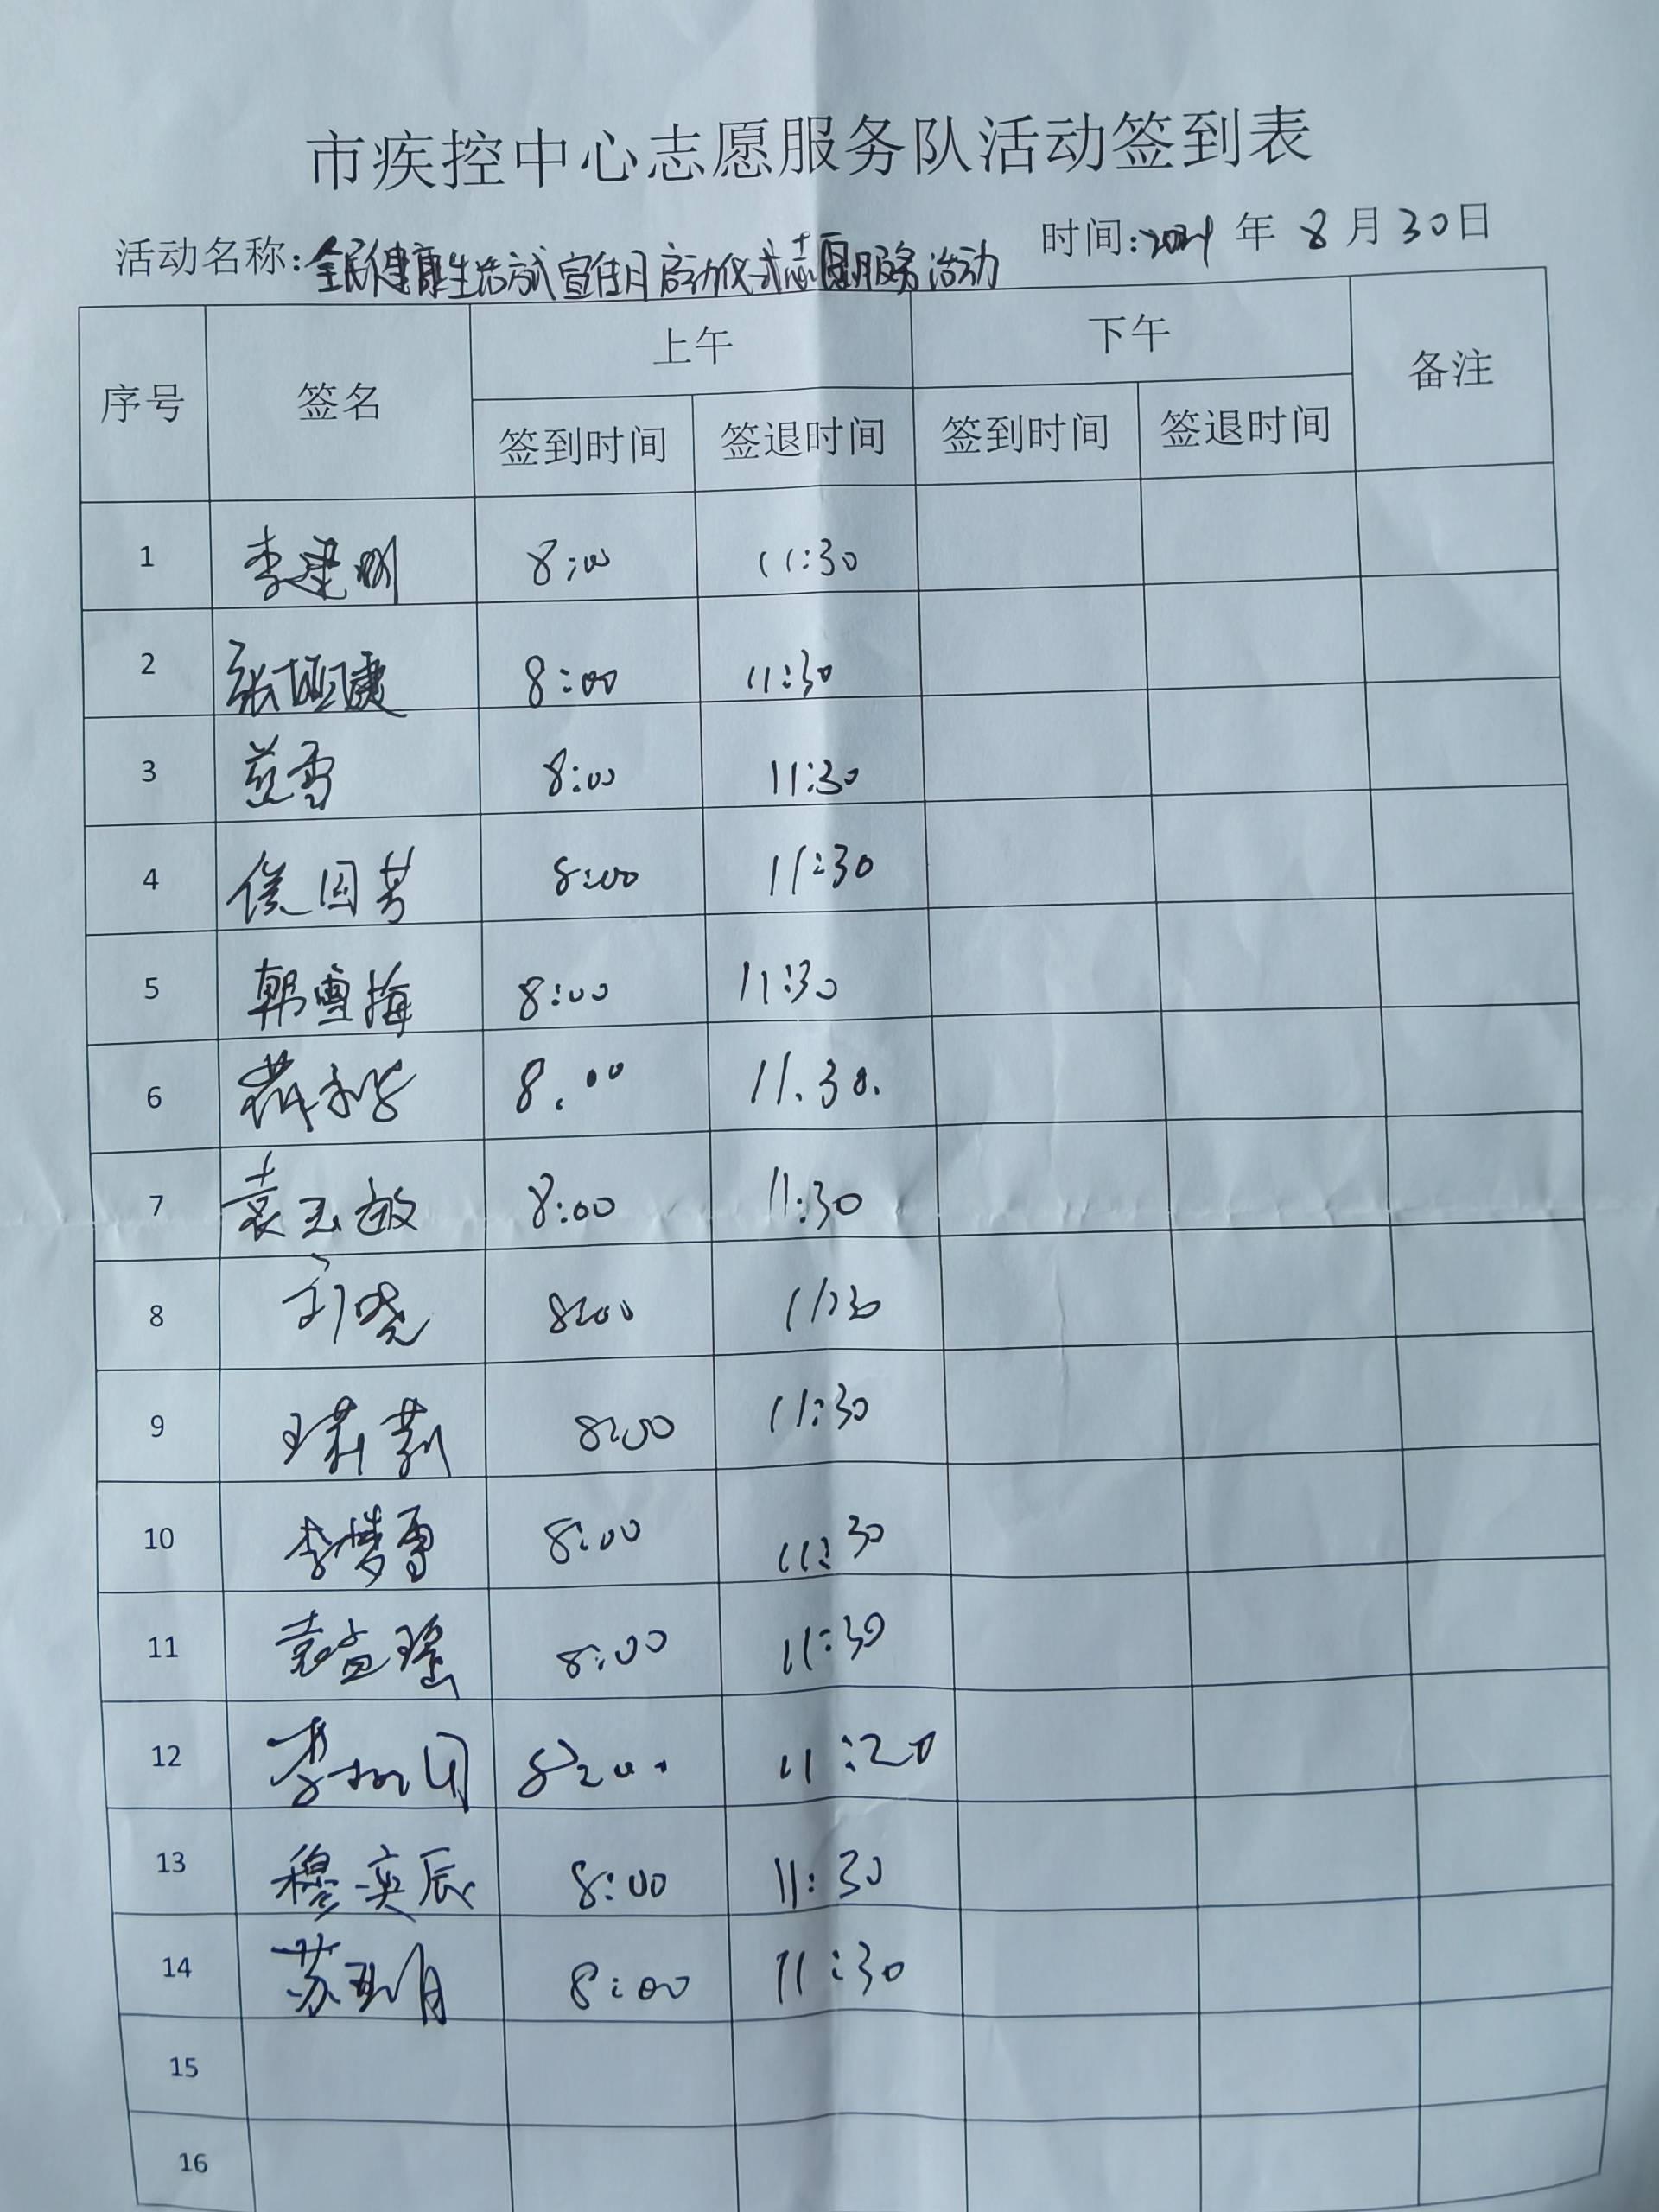 市疾控中心志愿服务队活动签到表
活动名称:全民健康生活方式宣传月启动仪式志愿服务活动 时间: 年 8 月 30 日
序号 签名 上午 下午 备注
签到时间 签退时间 签到时间 签退时间
1 李建明 8:00 11:30
2 8:00 11:30
3 8:00 11:30
4 侯国芳 8:00 11:30
5 韩雪梅 8:00 11:30
6 8.00 11.30.
7 袁玉敏 8:00 11:30
8 刘晓 8:00 11:30
9 王莉莉 8:00 11:30
10 李梦雪 8:00 11:30
11 袁孟瑶 8:00 11:30
12 8:00 11:20
13 穆奕辰 8:00 11:30
14 8:00 11:30
15
16